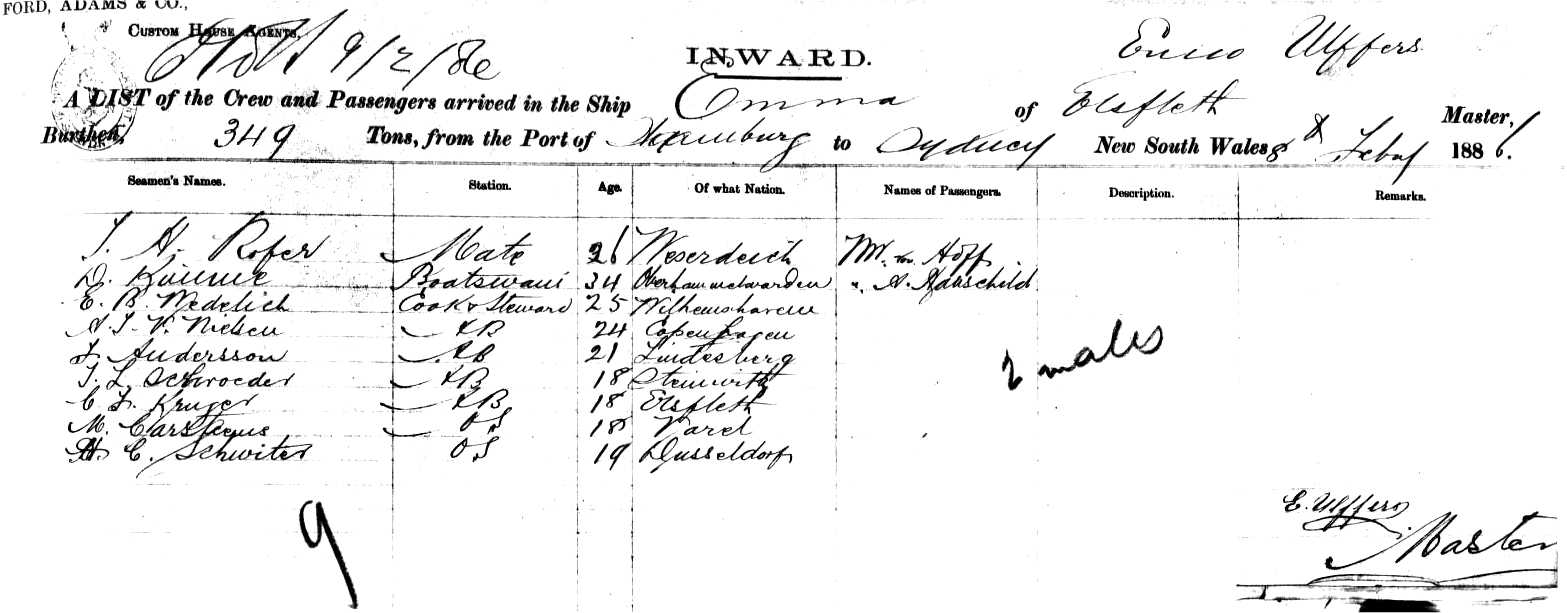 FORD, ADAMS & CO.,
CUSTOM HOUSE AGENTS,
9/2/86
INWARD.
Enno Ulffers
A LIST of the Crew and Passengers arrived in the Ship Emma of Elsfleth Master,
Burthen, 349 Tons, from the Port of Hamburg to Sydney New South Wales, 8 Feby 1886.
Seamen's Names. Station. Age. Of what Nation. Names of Passengers. Description. Remarks.
Mate 26 Weserdeich Mr. Hoff
D. Boatswain 34 Oberhammelwarden " A. Habschild
E. B. Medelich Cook & Steward 25 Wilhemshavene
A. J. V. Nielsen AB 24 Copenhagen
J. Andersson AB 21 Lindesberg
J. L. Schroeder AB 18
C. F. Kruger AB 18 Elsfleth
M. Carstens OS 18 Varel
H. C. Schwiter OS 19 Dusseldorf
2 males
9
E. Ulffers
Master